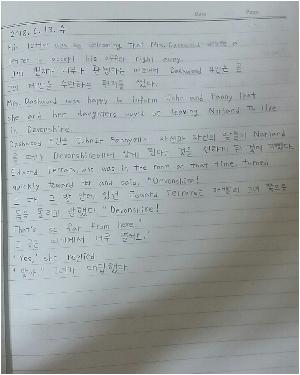 Date Page
2018. 6. 13. 수
His letter was so welcoming that Mrs. Dashwood wrote a
letter to accept his offer right away.
그의 편지는 너무나 환영하는 어조여서 Dashwood 부인은 곧
그의 제안을 수락하는 편지를 썼다.
Mrs. Dashwood was happy to inform John and Fanny that
she and her daughters would be leaving Norland to live
in Devonshire.
Dashwood 부인은 John과 Fanny에게 자신과 자신의 딸들이 Norland
를 떠나 Devonshire에서 살게 된다는 것을 알리게 된 것에 기뻤다.
Edward Ferrars, who was in the room at that time, turned
quickly toward her and said, "Devonshire!
그 때 그 방 안에 있던 Edward Ferrars는 재빨리 그녀 쪽으로
몸을 돌리고 말했다 "Devonshire!
That's so far from here."
그 곳은 여기에서 너무 멀어요."
"Yes," she replied
"맞아" 그녀가 대답했다